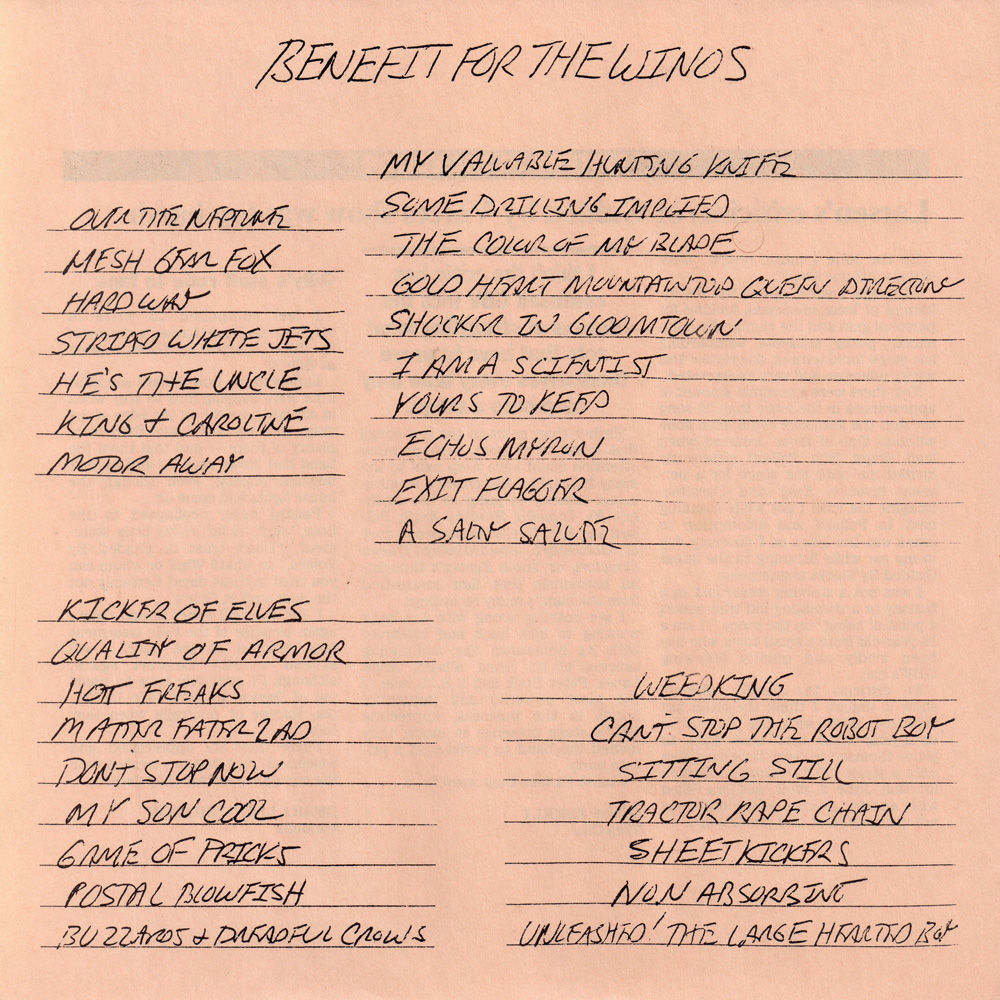 BENEFIT FOR THE WINOS
OVER THE NEPTUNE
MESH GEAR FOX
HARDWAY
STRIPED WHITE JETS
HE'S THE UNCLE
KING & CAROLINE
MOTOR AWAY
MY VALUABLE HUNTING KNIFE
SOME DRILLING IMPLIED
THE COLOR OF MY BLADE
GOLD HEART MOUNTAINTOP QUEEN DIRECTORY
SHOCKER IN GLOOMTOWN
I AM A SCIENTIST
YOURS TO KEEP
ECHOS MYRON
EXIT FLAGGER
A SALTY SALUTE
KICKER OF ELVES
QUALITY OF ARMOR
HOT FREAKS
MATTER EATER LAD
DON'T STOP NOW
MY SON COOL
GAME OF PRICKS
POSTAL BLOWFISH
BUZZARDS & DREADFUL CROWS
WEEDKING
CAN'T STOP THE ROBOT BOY
SITTING STILL
TRACTOR RAPE CHAIN
SHEETKICKERS
NON ABSORBING
UNLEASHED! THE LARGE HEARTED BOY